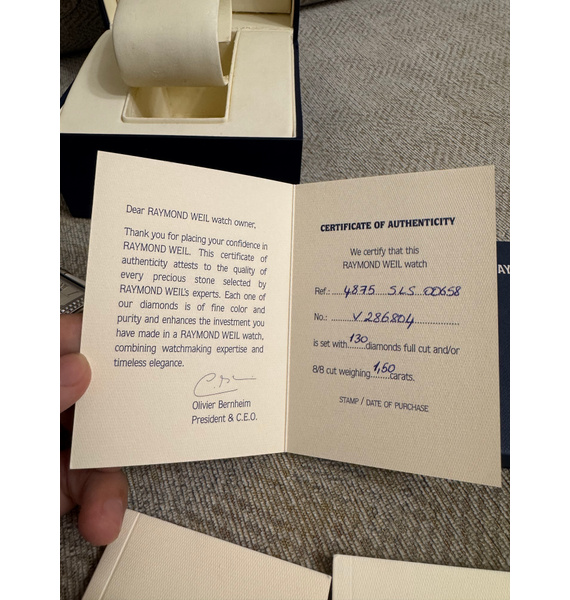 Dear RAYMOND WEIL watch owner,
Thank you for placing your confidence in
RAYMOND WEIL. This certificate of
authenticity attests to the quality of
every precious stone selected by
RAYMOND WEIL's experts. Each one of
our diamonds is of fine color and
purity and enhances the investment you
have made in a RAYMOND WEIL watch,
combining watchmaking expertise and
timeless elegance.
Olivier Bernheim
President & C.E.O.
CERTIFICATE OF AUTHENTICITY
We certify that this
RAYMOND WEIL watch
Ref.: ....4875....SLS..00658
No.: ........V.286804..............
is set with..130..diamonds full cut and/or
8/8 cut weighing..1,60..carats.
STAMP / DATE OF PURCHASE